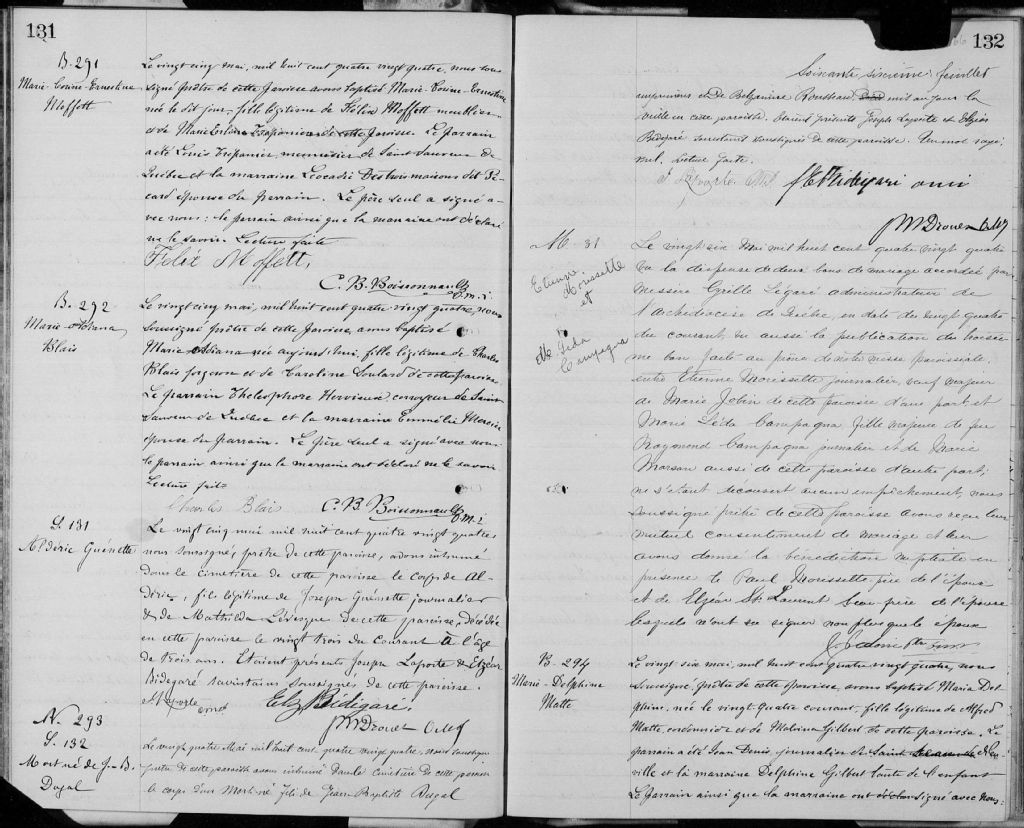 131
B. 291
Marie-Louise-Ernestine
Moffett
Le vingt cinq mai, mil huit cent quatre vingt quatre, nous sous
signé prêtre de cette paroisse avons baptisé Marie-Louise-Ernestine
née le dit jour, fille légitime de Félix Moffett meublier
et de Marie Trépanier de cette paroisse. Le parrain
a été Louis Trépanier, menuisier de Saint Sauveur de
Québec et la marraine Léocadie Destroismaisons dit Pi-
card épouse du parrain. Le père seul a signé a-
vec nous: le parrain ainsi que la marraine ont déclaré
ne le savoir. Lecture faite
Felix Moffett,
C. B. Boissonnault
O.m.i.
B. 292
Marie-
Blais
Le vingt cinq mai, mil huit cent quatre vingt quatre, nous
soussigné prêtre de cette paroisse, avons baptisé
Marie née aujourd'hui, fille légitime de Charles
Blais forgeron et de Caroline Soulard de cette paroisse
Le parrain Thelesphore Hervieux convoyeur de Saint
Sauveur de Québec et la marraine Emmélie Mercier
épouse du parrain. Le père seul a signé avec nous
le parrain ainsi que la marraine ont déclaré ne le savoir
Lecture faite
Charles Blais
C. B. Boissonnault
O.m.i
S. 131
Aldéric Guénette
Le vingt cinq mai mil huit cent quatre vingt quatre
nous soussigné, prêtre de cette paroisse, avons inhumé
dans le cimetière de cette paroisse le corps de Al-
déric, fils légitime de Joseph Guénette journalier
& de Mathilda Lévesque de cette paroisse, décédé
en cette paroisse le vingt trois du courant à l'âge
de trois ans. Etaient présents Joseph Laporte & Elzear
Bidégaré sacristains soussignés de cette paroisse.
J. Laporte Elz Bédégaré
J M Drouet O.M.I
N. 293
S. 132
Mort né de J-B.
Dugal
Le vingt quatre Mai mil huit cent quatre vingt quatre, nous soussigné
prêtre de cette paroisse avons inhumé dans le cimetière de cette paroisse
le corps d'un Mort-né fils de Jean Baptiste Dugal
132
Soixante sixième feuillet
et de Rousseau mis au jour la
veille en cette paroisse. Etaient présents Joseph Laporte et Elzéar
Bidégaré sacristains soussignés de cette paroisse. Un mot rayé
nul, lecture faite.
J. Laporte
J M Drouet O.M.I
M. 31
Etienne
Morissette
et
Léda
Campagna
Le vingt six Mai mil huit cent quatre vingt quatre
Vu la dispense de deux bans de mariage accordée par
messire Cyrille Légaré administrateur de
l'archidiocèse de Québec, en date du vingt quatre
du courant, vu aussi la publication du troisiè-
me ban faite au prône de notre messe paroissiale
entre Etienne Morissette journalier, veuf majeur
de Marie Jobin de cette paroisse d'une part, et
Marie Léda Campagna fille majeure de feu
Raymond Campagna journalier et de Marie
aussi de cette paroisse d'autre part,
ne s'étant découvert aucun empêchement, nous
soussigné prêtre de cette paroisse avons reçu leur
mutuel consentement de mariage et leur
avons donné la bénédiction nuptiale en
présence de Paul Morissette père de l'époux
et de Elzéar St Laurent beau-père de l'épouse
lesquels n'ont su signer non plus que le époux
B. 294
Marie-Delphine
Matte
Le vingt six mai, mil huit cent quatre vingt quatre, nous
soussigné, prêtre de cette paroisse, avons baptisé Maria Del-
phine, née le vingt quatre courant, fille légitime de Alfred
Matte, cordonnier et de Malvina Gilbert de cette paroisse. Le
parrain a été Jean Denis journalier de
ville et la marraine Delphine Gilbert tante de l'enfant
Le parrain ainsi que la marraine ont signé avec nous: